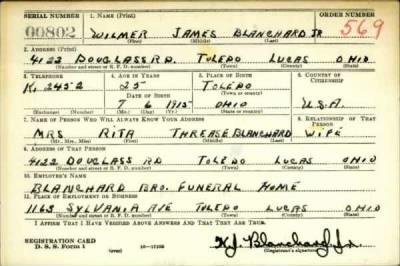 SERIAL NUMBER 1. NAME (Print) ORDER NUMBER
00802 WILMER JAMES BLANCHARD JR 569
(First) (Middle) (Last)
2. ADDRESS (Print)
4122 DOUGLASS RD. TOLEDO LUCAS OHIO
(Number and street or R. F. D. number) (Town) (County) (State)
3. TELEPHONE 4. AGE IN YEARS 5. PLACE OF BIRTH 6. COUNTRY OF CITIZENSHIP
K. 2452 25 TOLEDO
DATE OF BIRTH
7 6 1915 OHIO U.S.A.
(Exchange) (Number) (Mo.) (Day) (Yr.) (State or country)
7. NAME OF PERSON WHO WILL ALWAYS KNOW YOUR ADDRESS 8. RELATIONSHIP OF THAT PERSON
MRS RITA THREASE BLANCHARD WIFE
(Mr., Mrs., Miss) (First) (Middle) (Last)
9. ADDRESS OF THAT PERSON
4122 DOUGLASS RD TOLEDO LUCAS OHIO
(Number and street or R. F. D. number) (Town) (County) (State)
10. EMPLOYER'S NAME
BLANCHARD BRO. FUNERAL HOME
11. PLACE OF EMPLOYMENT OR BUSINESS
1163 SYLVANIA AVE TOLEDO LUCAS OHIO
(Number and street or R. F. D. number) (Town) (County) (State)
I AFFIRM THAT I HAVE VERIFIED ABOVE ANSWERS AND THAT THEY ARE TRUE.
REGISTRATION CARD
D. S. S. Form 1 (over) 16—17105 W J Blanchard Jr.
(Registrant's signature)